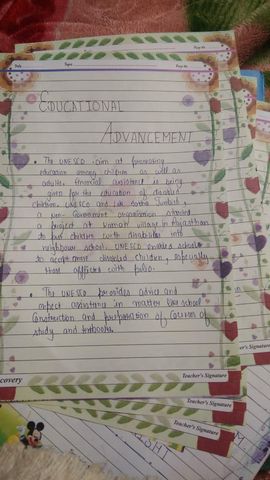 Date
Topic
Page No.
EDUCATIONAL
ADVANCEMENT
• The UNESCO aim at promoting
education among children as well as
adults. Financial assistance is being
given for the education of disabled
children. UNESCO and
a non-Government organisation started
a project at village in Rajasthan
to put children with disabilities into
neighbour school. UNESCO enables schools
to accept more disabled children, especially
those affected with polio.
• The UNESCO provides advice and
expect assistance in matter like school
construction and preparation of courses of
study and textbooks.
covery
Teacher's Signature
Teacher's Signature
Teacher's Signature
Teacher's Signature